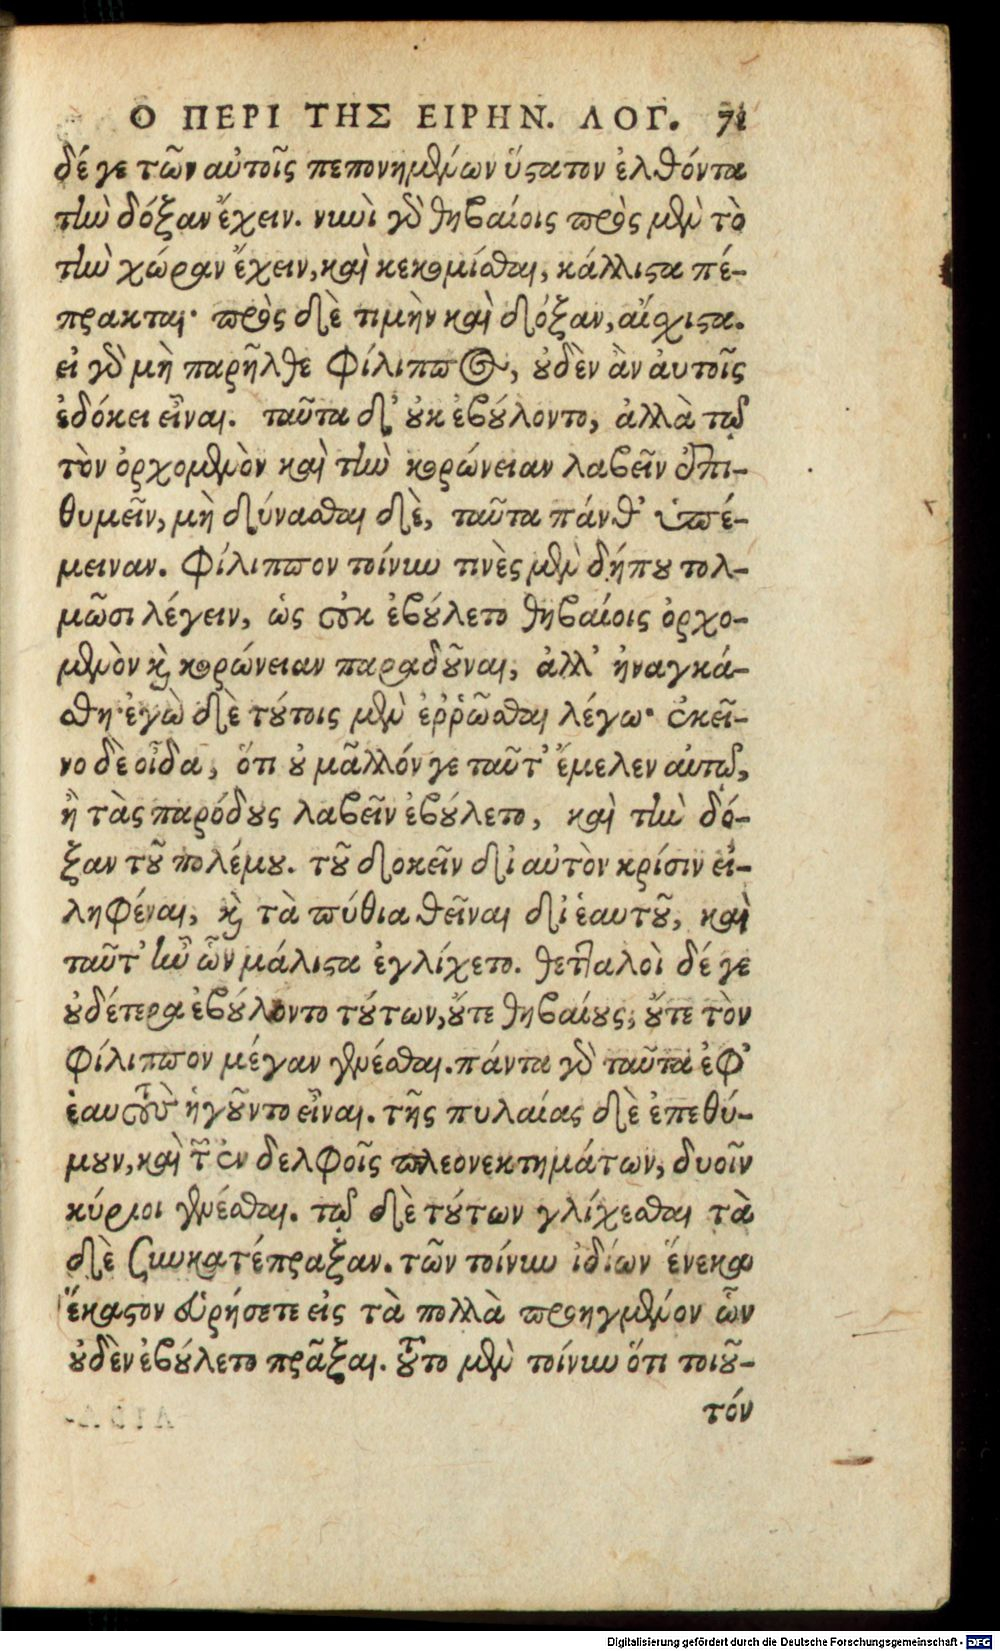 Ο ΠΕΡΙ ΤΗΣ ΕΙΡΗΝ. ΛΟΓ. 71
δέ γε τῶν αὐτοῖς πεπονημένων ὕστατον ἐλθόντα
τὴν δόξαν ἔχειν. νυνὶ γὰρ θηβαίοις πρὸς μὲν τὸ
τὴν χώραν ἔχειν, καὶ κεκομίσθαι, κάλλιστα πέ-
πρακται· πρὸς δὲ τιμὴν καὶ δόξαν, αἴσχιστα.
εἰ γὰρ μὴ παρῆλθε Φίλιππος, οὐδὲν ἂν ἀυτοῖς
ἐδόκει εἶναι. ταῦτα δ' οὐκ ἐβούλοντο, ἀλλὰ τῷ
τὸν ὀρχομενὸν καὶ τὴν κορώνειαν λαβεῖν ἐπι-
θυμεῖν, μὴ δύνασθαι δὲ, ταῦτα πάνθ' ὑπέ-
μειναν. Φίλιππον τοίνυν τινὲς μὲν δήπου τολ-
μῶσι λέγειν, ὡς οὐκ ἐβούλετο θηβαίοις ὀρχο-
μενὸν καὶ κορώνειαν παραδοῦναι, ἀλλ' ἠναγκά-
σθη· ἐγὼ δὲ τούτοις μὲν ἐῤῥῶσθαι λέγω· ἐκεῖ-
νο δὲ οἶδα, ὅτι οὐ μᾶλλόν γε ταῦτ' ἔμελεν αὐτῷ,
ἢ τὰς παρόδους λαβεῖν ἐβούλετο, καὶ τὴν δό-
ξαν τοῦ πολέμου. τοῦ δοκεῖν δι αὐτὸν κρίσιν εἰ-
ληφέναι, καὶ τὰ πύθια θεῖναι δι ἑαυτοῦ, καὶ
ταῦτ' ἦν ὧν μάλιστα ἐγλίχετο. θετταλοὶ δέ γε
οὐδέτερα ἐβούλοντο τούτων, οὔτε θηβαίους, οὔτε τὸν
Φίλιππον μέγαν γενέσθαι. πάντα γὰρ ταῦτα ἐφ'
ἑαυτοὺς ἡγοῦντο εἶναι. τῆς πυλαίας δὲ ἐπεθύ-
μουν, καὶ τῶν ἐν δελφοῖς πλεονεκτημάτων, δυοῖν
κύριοι γενέσθαι. τῷ δὲ τούτων γλίχεσθαι τὰ
δὲ συγκατέπραξαν. τῶν τοίνυν ἰδίων ἕνεκα
ἕκαστον εὑρήσετε εἰς τὰ πολλὰ προηγμένον ὧν
οὐδὲν ἐβούλετο πρᾶξαι. τοῦτο μὲν τοίνυν ὅτι τοιοῦ-
τόν
Digitalisierung gefördert durch die Deutsche Forschungsgemeinschaft - DFG